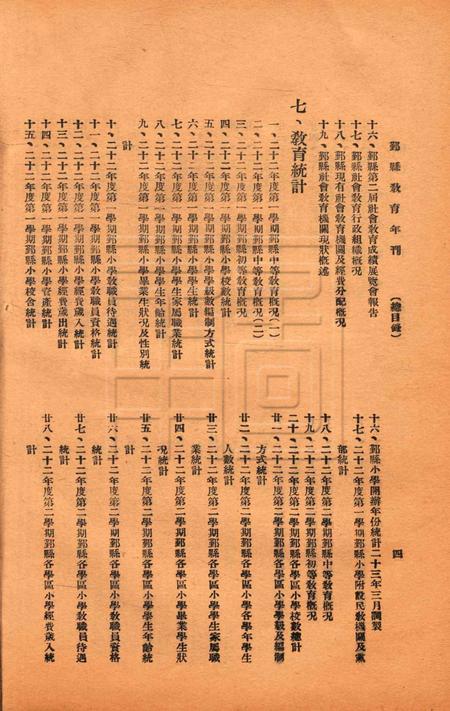 鄞縣教育年刊 (總目錄)
四
十六、鄞縣第二屆社會教育成績展覽會報告
十七、鄞縣社會教育行政組織概况
十八、鄞縣現有社會教育機關及經費分配概况
十九、鄞縣社會教育機關現狀概述
七、教育統計
一、二十二年度第一學期鄞縣中等教育概况(一)
二、二十二年度第一學期鄞縣中等教育概况(二)
三、二十二年度第一學期鄞縣初等教育概况
四、二十二年度第一學期鄞縣小學校數統計
五、二十二年度第一學期鄞縣小學學級數編制方式統計
六、二十二年度第一學期鄞縣小學學生統計
七、二十二年度第一學期鄞縣小學學生家屬職業統計
八、二十二年度第一學期鄞縣小學學生年齡統計
九、二十二年度第一學期鄞縣小學畢業生狀况及性別統
計
十、二十二年度第一學期鄞縣小學教職員待遇統計
十一、二十二年度第一學期鄞縣小學教職員資格統計
十二、二十二年度第一學期鄞縣小學經費歲入統計
十三、二十二年度第一學期鄞縣小學經費歲出統計
十四、二十二年度第一學期鄞縣小學資產統計
十五、二十二年度第一學期鄞縣小學校舍統計
十六、鄞縣小學開辦年份統計二十三年三月調製
十七、二十二年度第一學期鄞縣小學附設民教機關及黨
部統計
十八、二十二年度第二學期鄞縣中等教育概况
十九、二十二年度第二學期鄞縣初等教育概况
二十、二十二年度第二學期鄞縣各學區小學校數總計
廿一、二十二年度第二學期鄞縣各學區小學學級及編制
方式統計
廿二、二十二年度第二學期鄞縣各學區小學各學年學生
人數統計
廿三、二十二年度第二學期鄞縣各學區小學學生家屬職
業統計
廿四、二十二年度第二學期鄞縣各學區小學畢業學生狀
况統計
廿五、二十二年度第二學期鄞縣各學區小學學生年齡統
計
廿六、二十二年度第二學期鄞縣各學區小學教職員資格
統計
廿七、二十二年度第二學期鄞縣各學區小學教職員待遇
統計
廿八、二十二年度第二學期鄞縣各學區小學經費歲入統
計